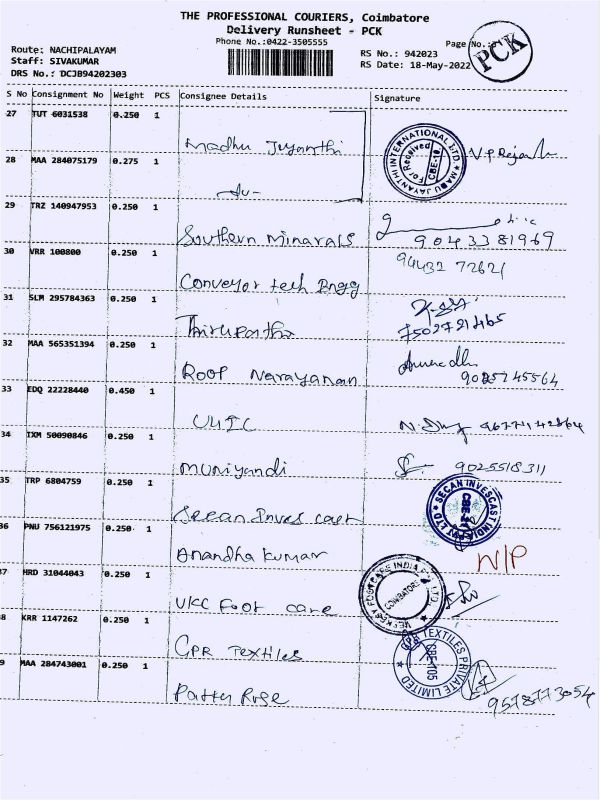 THE PROFESSIONAL COURIERS, Coimbatore
Delivery Runsheet - PCK
Phone No.:0422-3505555
Page No.:
PCK
Route: NACHIPALAYAM
Staff: SIVAKUMAR
DRS No.: DCJB94202303
RS No.: 942023
RS Date: 18-May-2022
S No Consignment No Weight PCS Consignee Details Signature
27 TUT 6031538 0.250 1
Madhu Jayanthi
MADU JAYANTHI INTERNATIONAL LTD. For Received CBE-10
28 MAA 284075179 0.275 1
-do-
29 TRZ 140947953 0.250 1
Southern Minarals 9043381969
30 VRR 100800 0.250 1
94432 72621
Conveyor tech Engg
31 SLM 295784363 0.250 1
7502721465
32 MAA 565351394 0.250 1
Roop Narayanan 9025245564
33 EDQ 22228440 0.450 1
34 IXM 50090846 0.250 1
Muniyandi 9025518311
35 TRP 6804759 0.250 1
Secan Inves cast
SECAN INVESCAST INDIA PVT LTD CBE
36 PNU 756121975 0.250 1
Anandha kumar
N/P
37 HRD 31044043 0.250 1
VKC Foot care
VEEKESY FOOTCARE INDIA PVT. LTD. COIMBATORE
38 KRR 1147262 0.250 1
GPR Textiles
GPR TEXTILES PRIVATE LIMITED CBE-105
39 MAA 284743001 0.250 1
9578773054